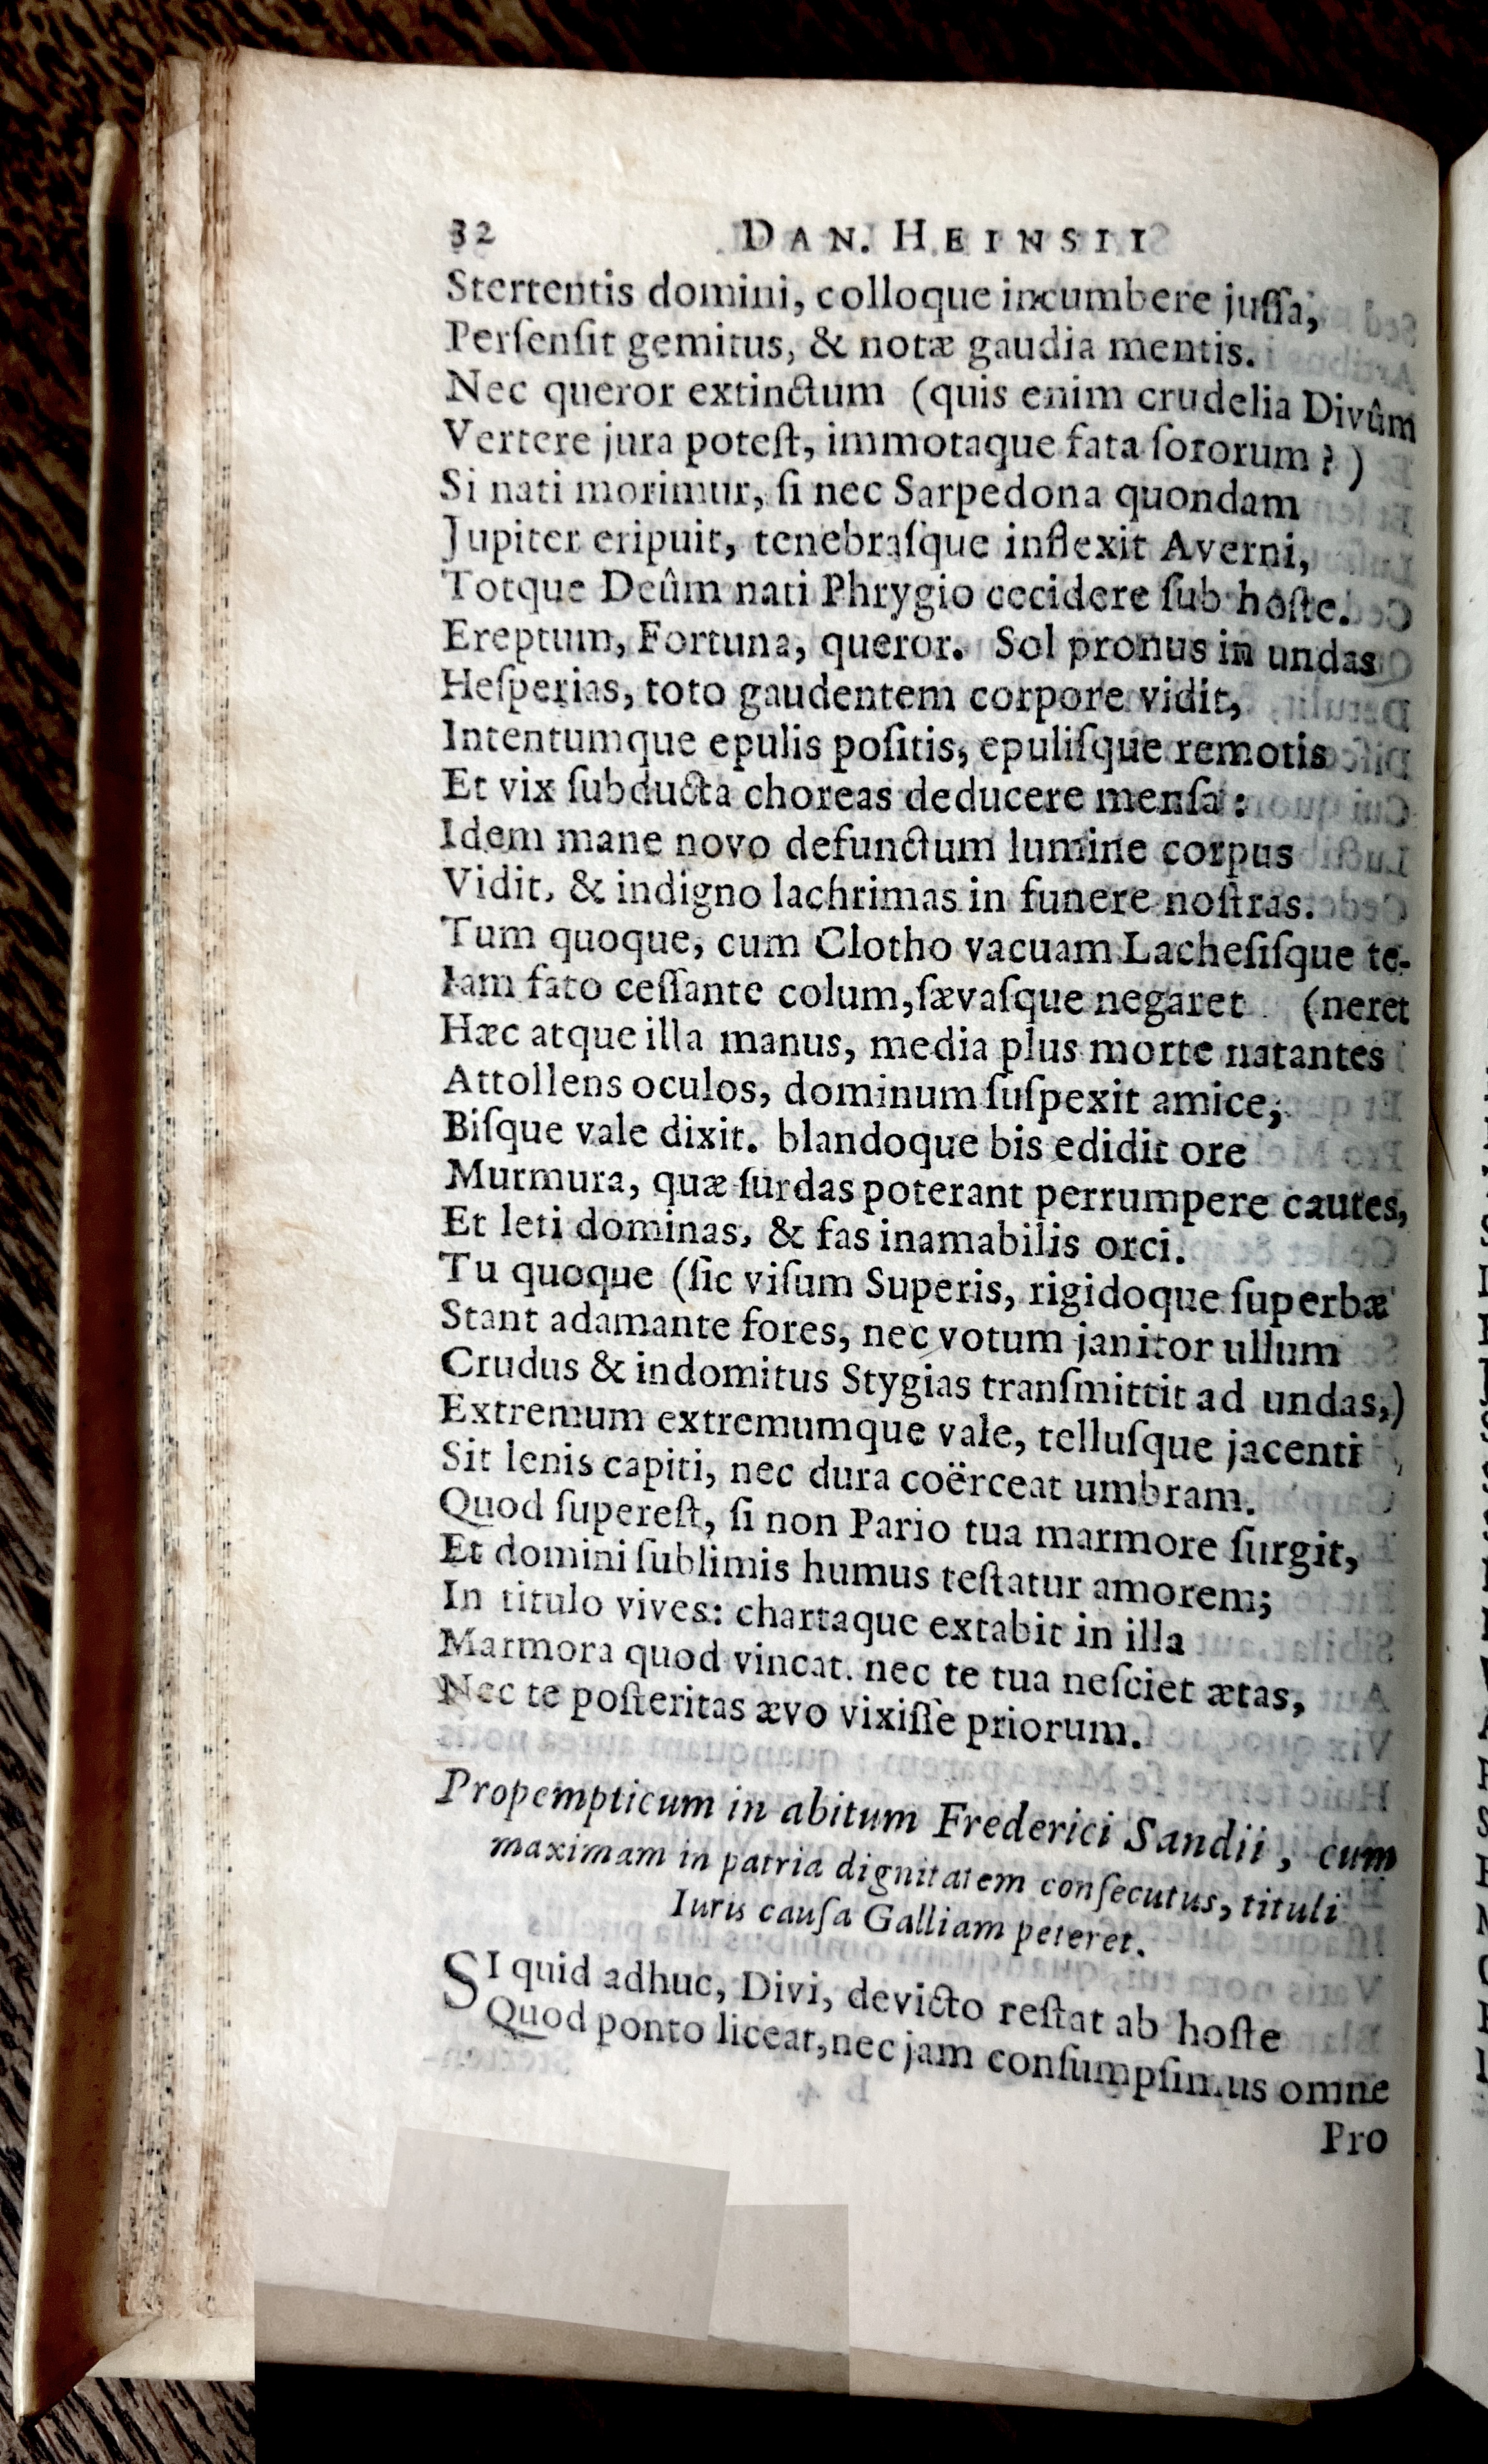 32 DAN. HEINSII
Stertentis domini, colloque incumbere juſſa,
Perſenſit gemitus, & notæ gaudia mentis.
Nec queror extinctum (quis enim crudelia Divûm
Vertere jura poteſt, immotaque fata ſororum?)
Si nati morimur, ſi nec Sarpedona quondam
Jupiter eripuit, tenebraſque inflexit Averni,
Totque Deûm nati Phrygio cecidere ſub hoſte.
Ereptum, Fortuna, queror. Sol pronus in undas
Heſperias, toto gaudentem corpore vidit,
Intentumque epulis poſitis, epuliſque remotis
Et vix ſubducta choreas deducere menſa:
Idem mane novo defunctum lumine corpus
Vidit, & indigno lachrimas in funere noſtras.
Tum quoque, cum Clotho vacuam Lacheſiſque te-
Iam fato ceſſante colum, ſævaſque negaret (neret
Hæc atque illa manus, media plus morte natantes
Attollens oculos, dominum ſuſpexit amice,
Biſque vale dixit. blandoque bis edidit ore
Murmura, quæ ſurdas poterant perrumpere cautes,
Et leti dominas, & fas inamabilis orci.
Tu quoque (ſic viſum Superis, rigidoque ſuperbæ
Stant adamante fores, nec votum janitor ullum
Crudus & indomitus Stygias tranſmittit ad undas,)
Extremum extremumque vale, telluſque jacenti
Sit lenis capiti, nec dura coërceat umbram.
Quod ſupereſt, ſi non Pario tua marmore ſurgit,
Et domini ſublimis humus teſtatur amorem;
In titulo vives: chartaque extabit in illa
Marmora quod vincat. nec te tua neſciet ætas,
Nec te poſteritas ævo vixiſſe priorum.
Propempticum in abitum Frederici Sandii, cum
maximam in patria dignitatem conſecutus, tituli
Iuris cauſa Galliam peteret.
SI quid adhuc, Divi, devicto reſtat ab hoſte
Quod ponto liceat, nec jam conſumpſimus omne
Pro